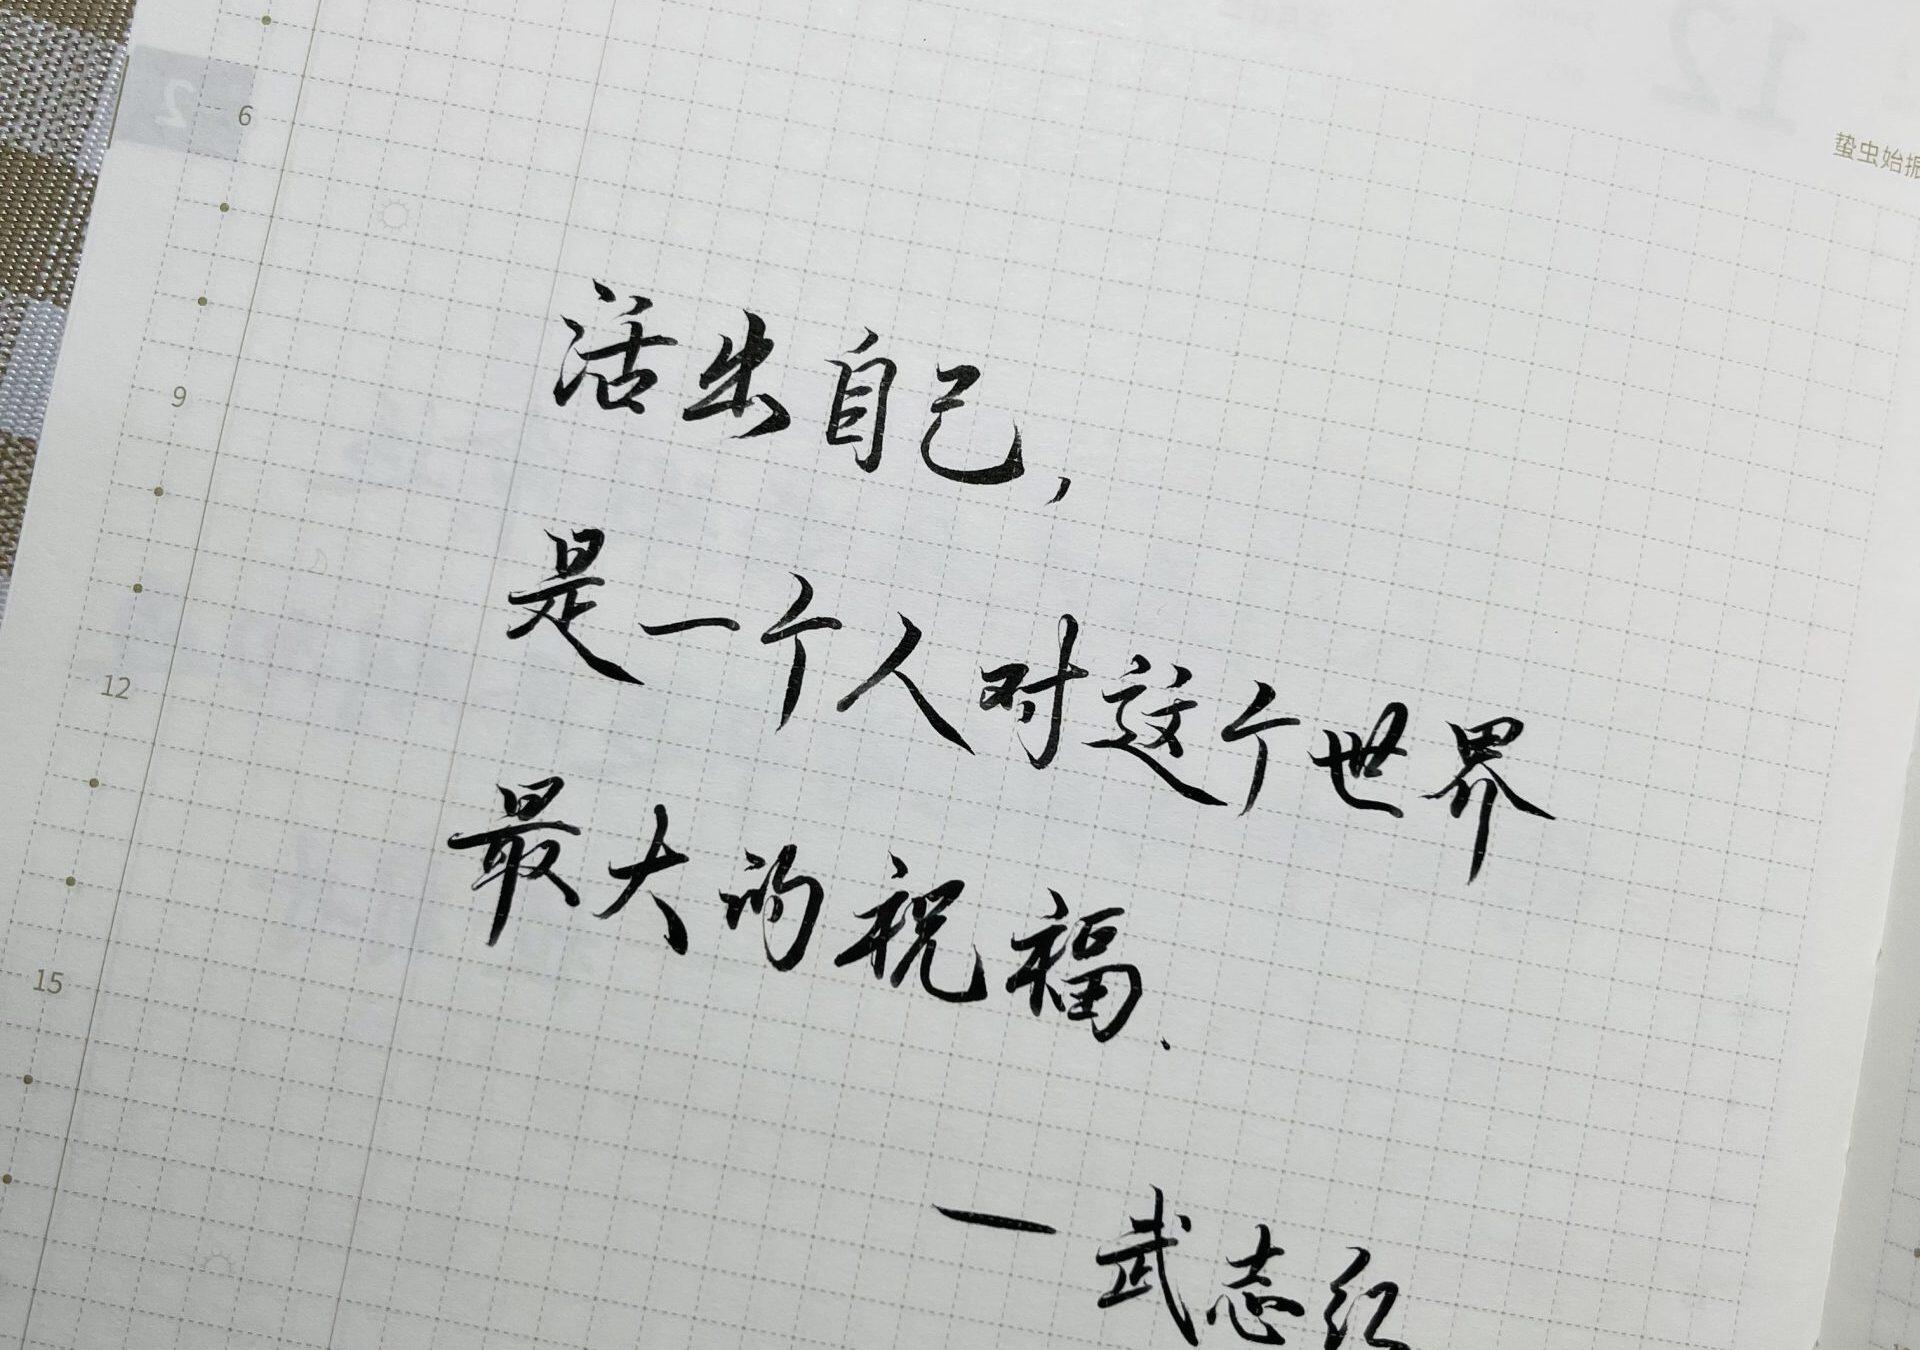 12
蛰虫始振
2
6
9
12
15
活出自己,
是一个人对这个世界
最大的祝福.
—武志红